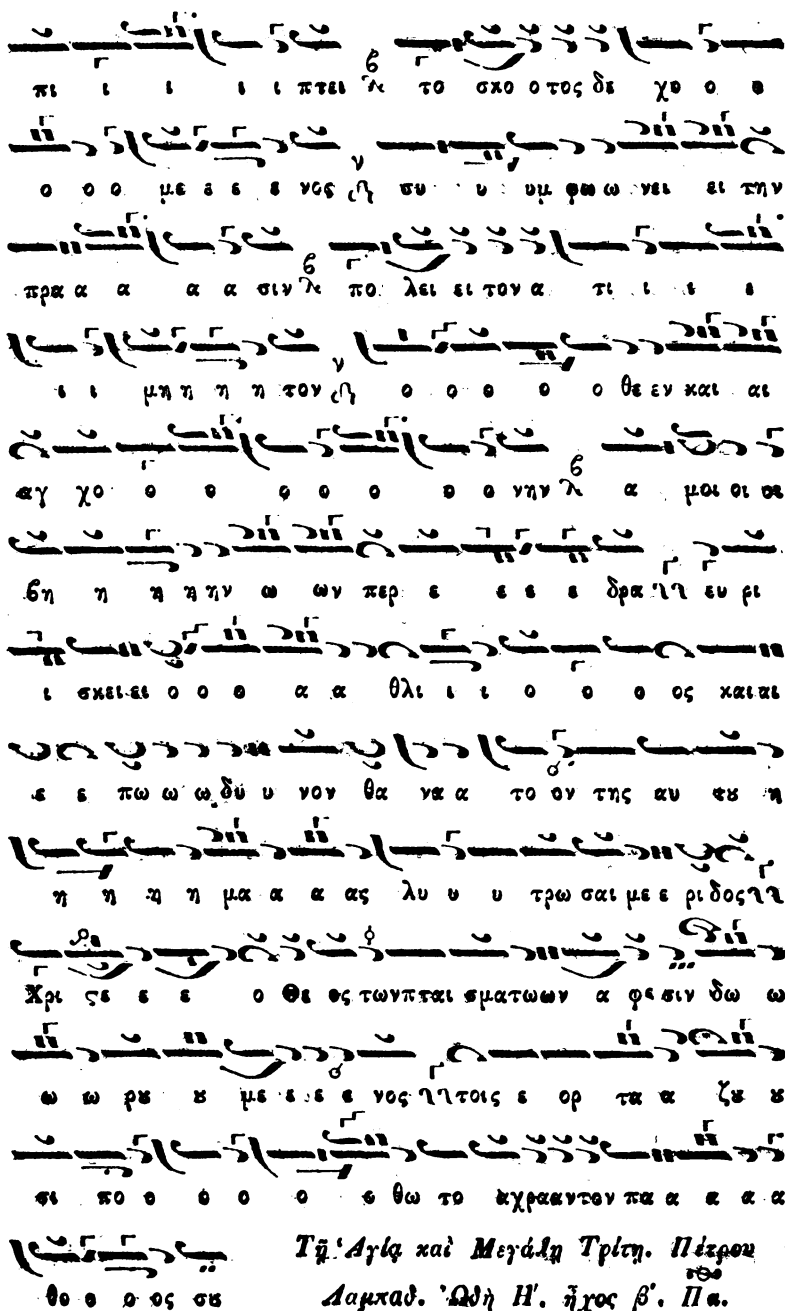 πι ι ι ι ι πτει το σκο ο τος δε χο ο ο
ο ο ο με ε ε ε νος συ υ υ υμ φω ω νει ει την
πρα α α α α σιν πο λει ει τον α τι ι ι ι
ι ι μη η η η τον ο ο ο ο ο ο θε εν και αι
αγ χο ο ο ο ο ο ο ο νην α μοι οι σε
βη η η η ην ω ων περ ε ε ε ε δρα ευ ρι
ι σκει ει ο ο ο α α θλι ι ι ο ο ο ος και αι
ε ε πω ω ω δυ υ νον θα να α το ον της αυ του η
η η η η μα α α ας λυ υ υ τρω σαι με ε ρι δος
Χρι ϛε ε ε ο Θε ος των πται σματω ων α φε σιν δω ω
ω ω ρου ου με ε ε ε νος τοις ε ορ τα α ζου ου
σι πο ο ο ο ο ο θω το αχρααντον πα α α α α
θο ο ο ος σου Τῇ Ἁγίᾳ καὶ Μεγάλῃ Τρίτῃ. Πέτρου
Λαμπαδ. Ὠδὴ Η΄. ἦχος β΄. Πα.